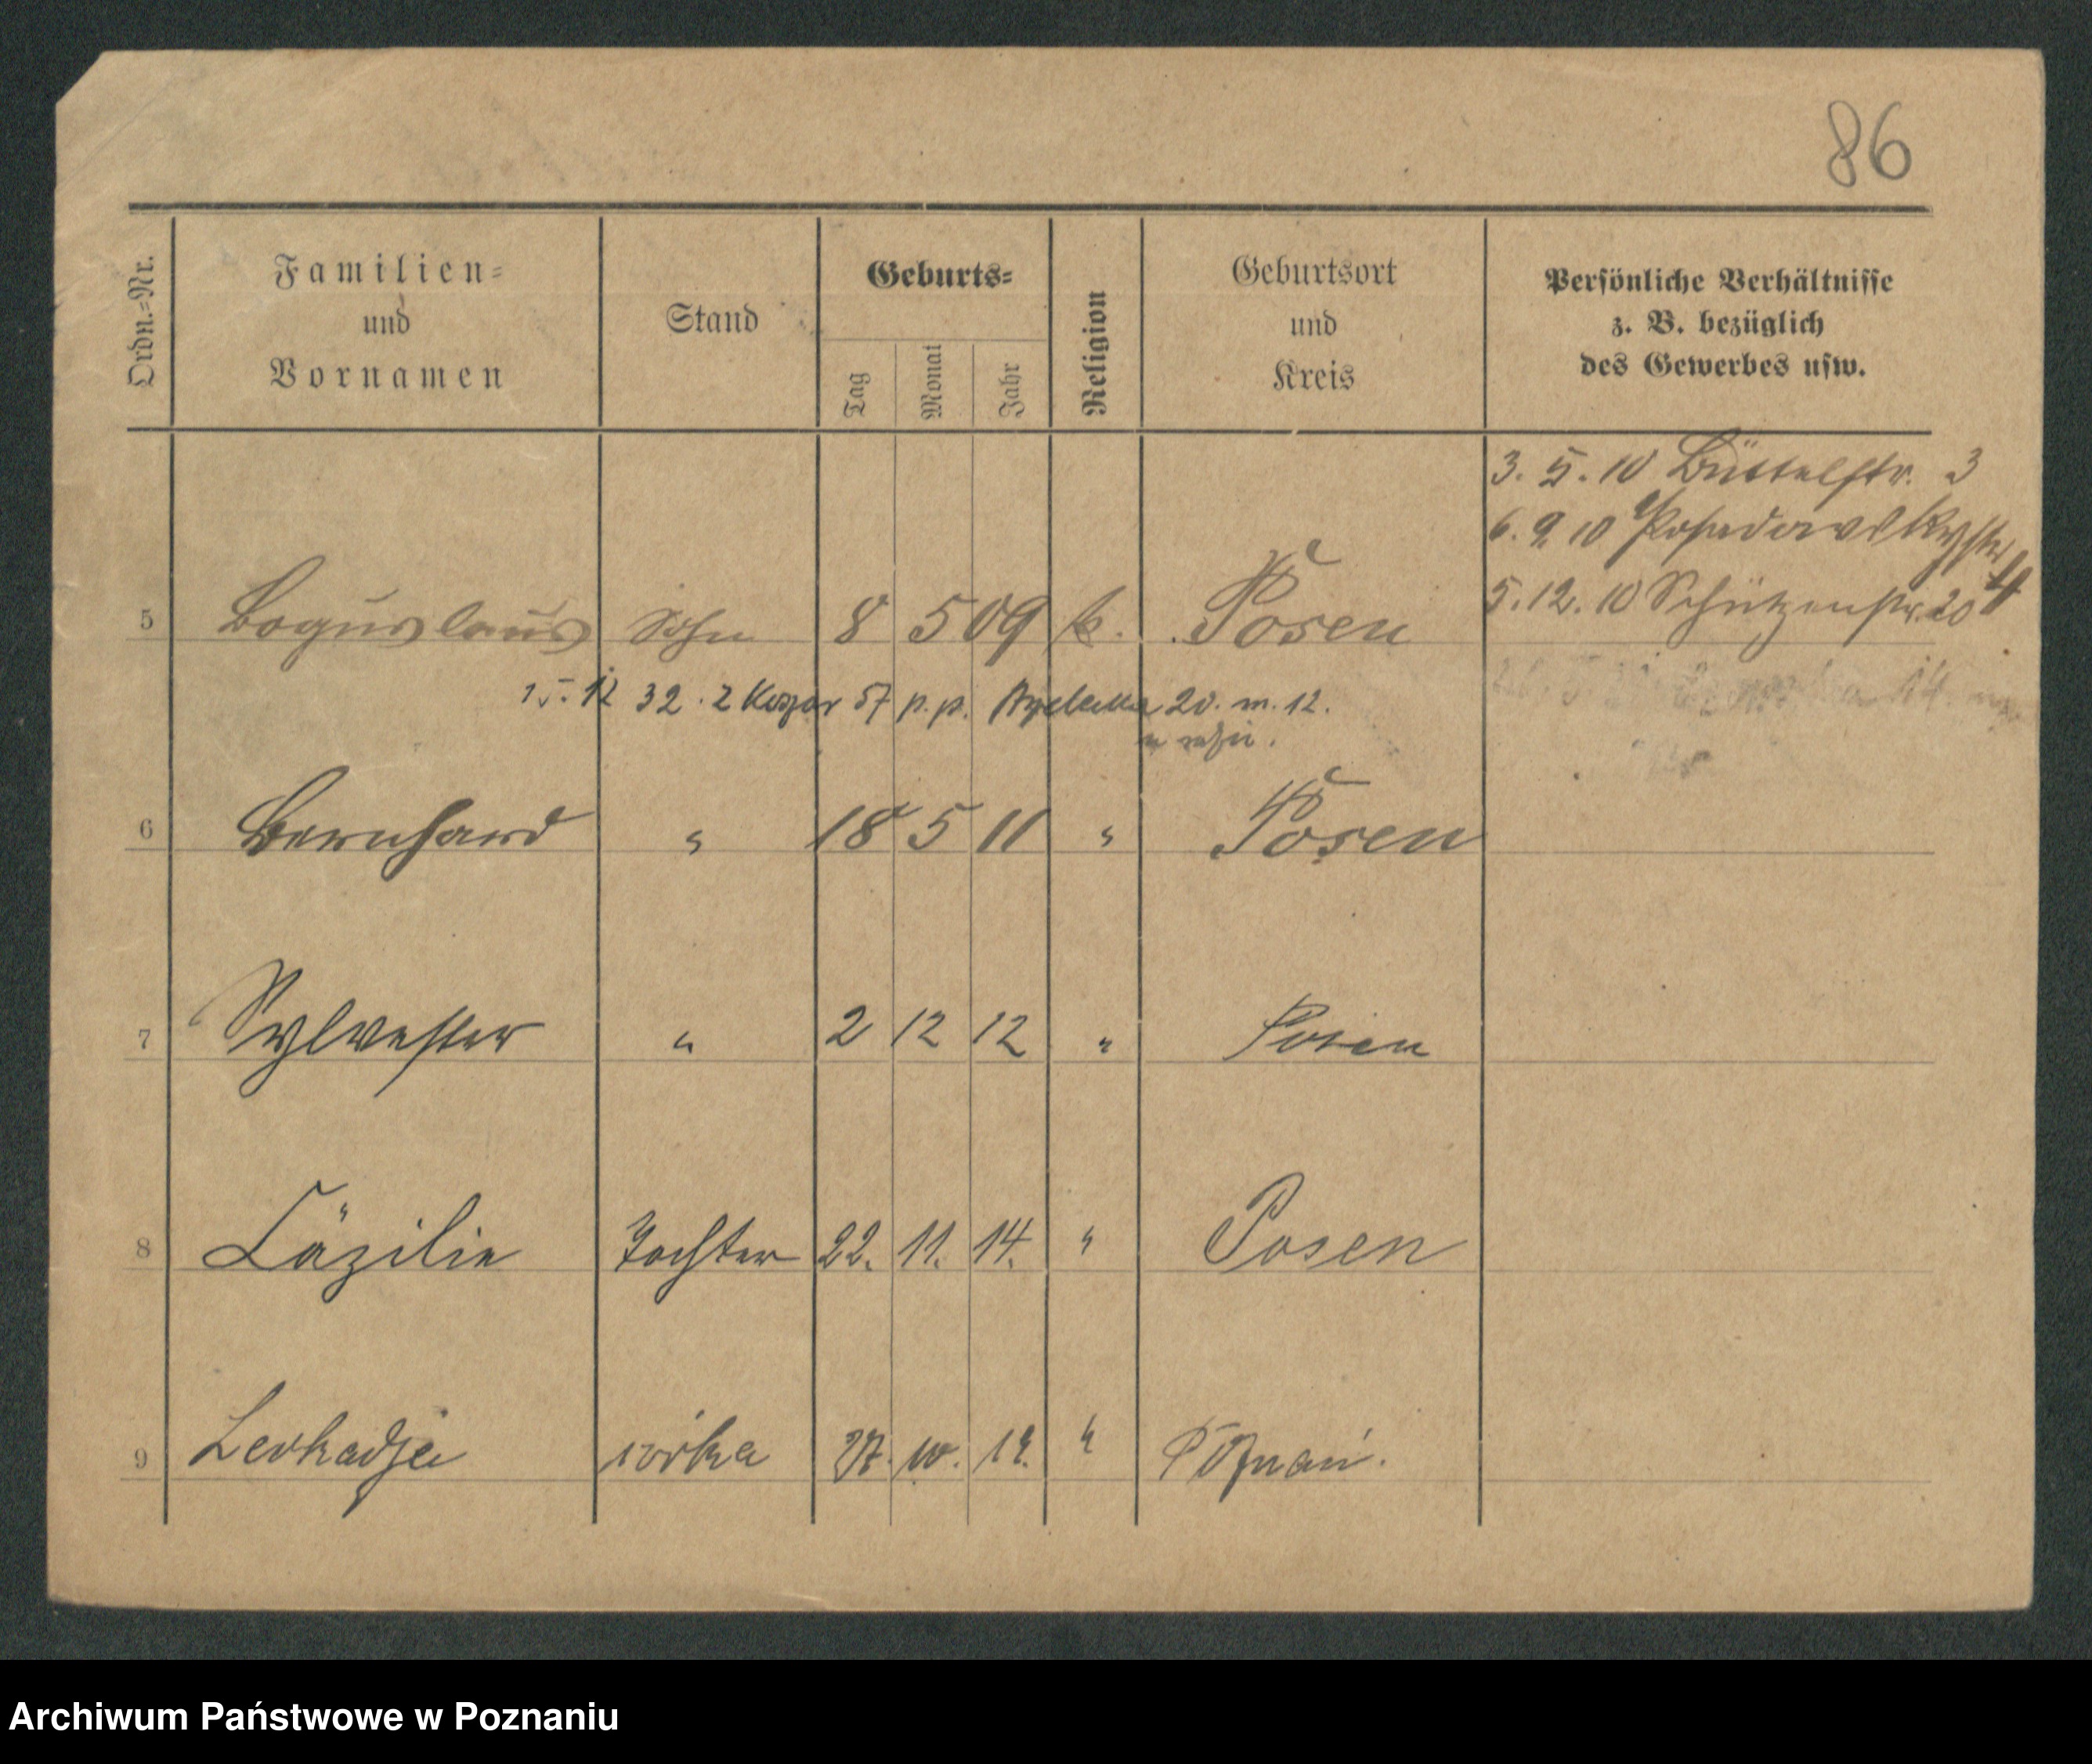 86
Ordn.=Nr.
Familien=
und
Vornamen
Stand
Geburts=
Tag
Monat
Jahr
Religion
Geburtsort
und
Kreis
Persönliche Verhältnisse
z. B. bezüglich
des Gewerbes usw.
3. 5. 10 Büttelstr. 3
6. 9. 10 Posadowskystr
5. 12. 10 Schützenstr. 20
5 Boguslaus Sohn 8 5 09 k. Posen
32 57 p. p. 20. m. 12.
6 Bernhard " 18 5 11 " Posen
7 Sylvester " 2 12 12 " Posen
8 Cäzilie Tochter 22. 11. 14. " Posen
9 Leokadja córka " Poznań.
Archiwum Państwowe w Poznaniu